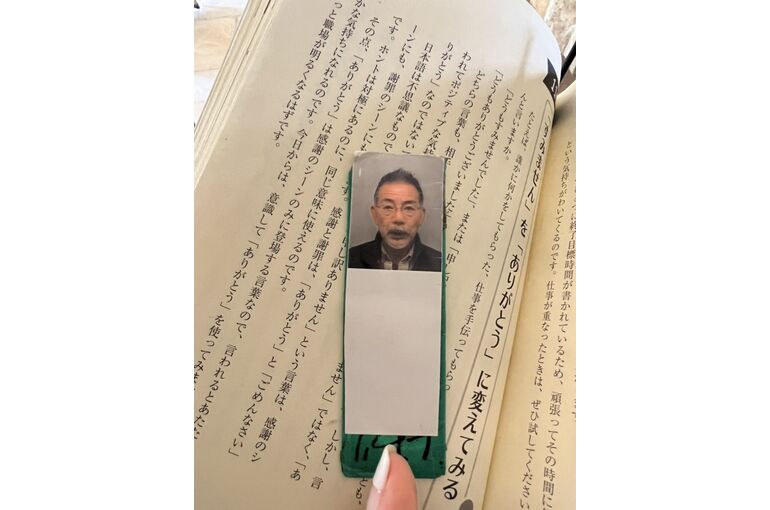 に終了目標時間が書かれているため、頑張ってその時間に
という気持ちがわいてくるのです。仕事が重なったときは、ぜひ試してください
「すみません」を「ありがとう」に変えてみる
たとえば、誰かに何かをしてもらった、仕事を手伝ってもらっ
んと言いますか。
「どうもすみませんでした」、または「申し
「どうもありがとうございました」
どちらの言葉も、相 とも、
われてポジティブな気持 しかし、言
りがとう」なのではない ません」ではなく、「あ
日本語は不思議なもので 申し訳ありません」という言葉は、感謝のシ
ーンにも、謝罪のシーンにも す。感謝と謝罪は、「ありがとう」と「ごめんなさい」
です。ホントは対極にあるのに、同じ意味に使えるのです。
その点、「ありがとう」は感謝のシーンのみに登場する言葉なので、言われるとあたた
かな気持ちになれるのです。今日からは、意識して「ありがとう」を使ってみま
っと職場が明るくなるはずです。